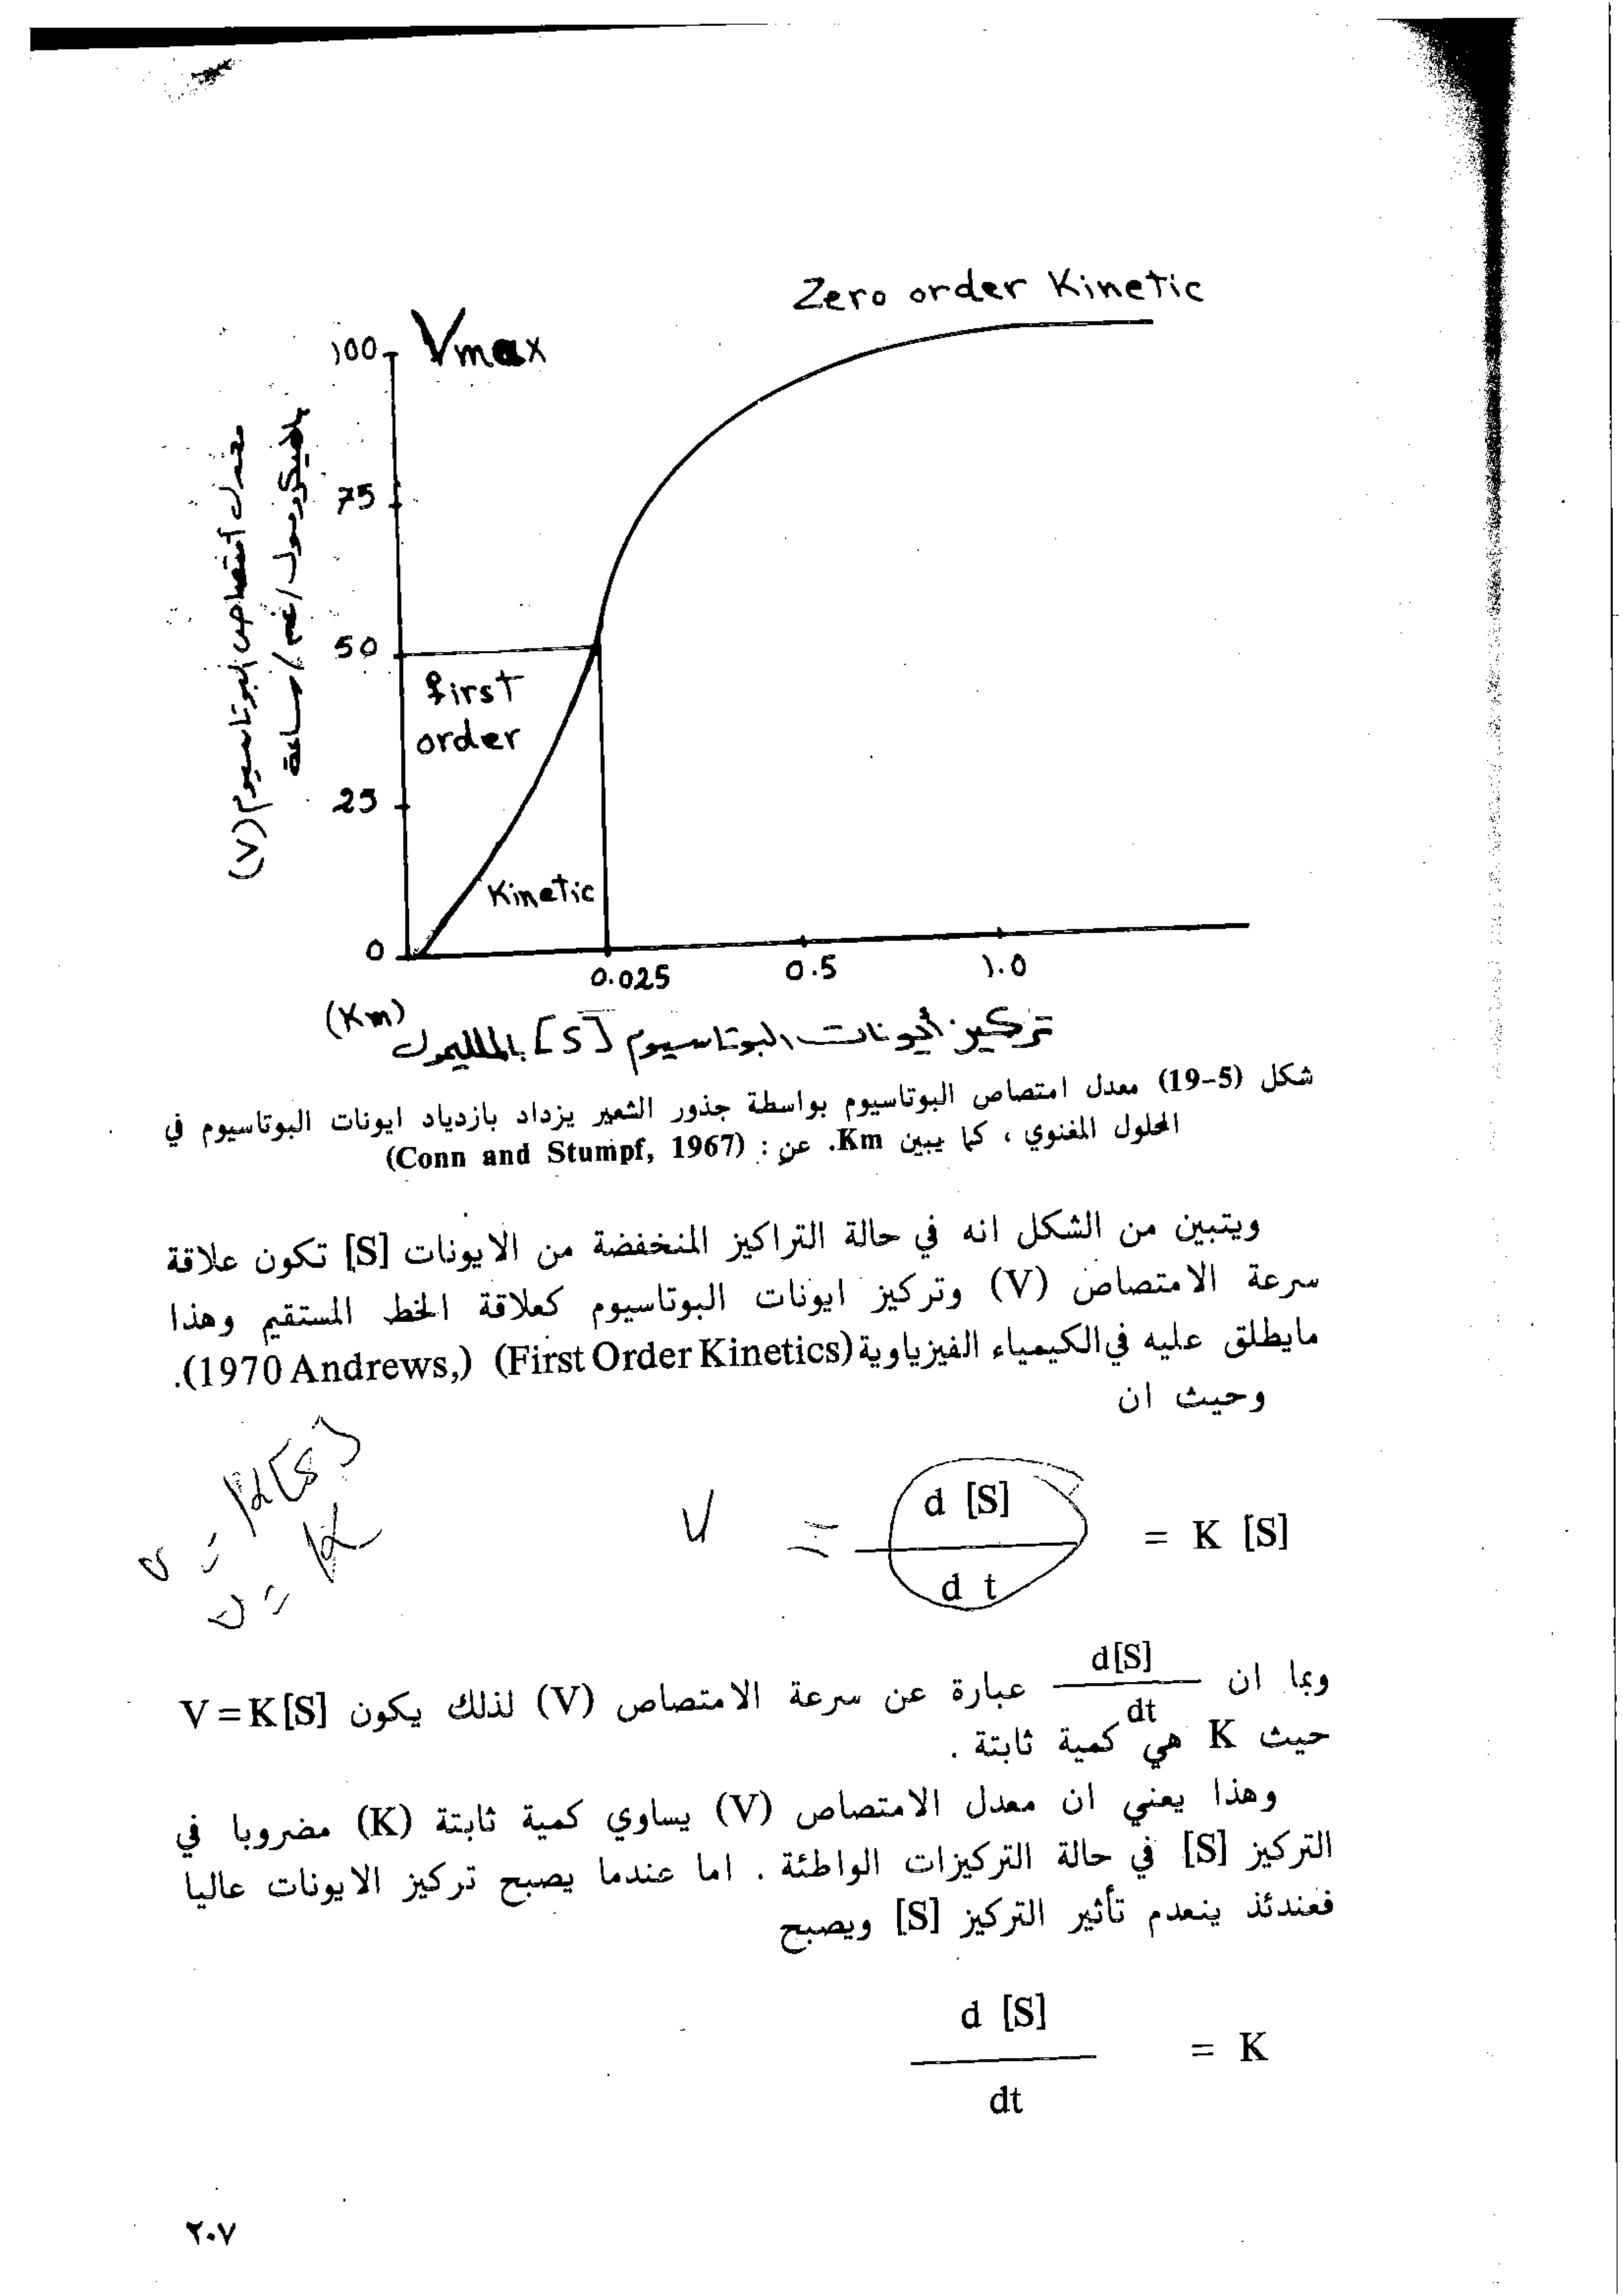 Zero order Kinetic
Vmax
100
75
50
25
0
معدل امتصاص البوتاسيوم (V)
بالميكرومول/غم/ساعة
first
order
Kinetic
0.025
0.5
1.0
(Km)
تركيز أيونات البوتاسيوم [S] بالمليمول
شكل (5-19) معدل امتصاص البوتاسيوم بواسطة جذور الشعير يزداد بازدياد ايونات البوتاسيوم في
المحلول المغذوي ، كما يبين Km. عن : (Conn and Stumpf, 1967)
ويتبين من الشكل انه في حالة التراكيز المنخفضة من الايونات [S] تكون علاقة
سرعة الامتصاص (V) وتركيز ايونات البوتاسيوم كعلاقة الخط المستقيم وهذا
مايطلق عليه في الكيمياء الفيزياوية (First Order Kinetics) (1970 Andrews,).
وحيث ان
v = K[S]
v = K
V = d [S]
d t
= K [S]
وبما ان d[S]
dt
عبارة عن سرعة الامتصاص (V) لذلك يكون V = K [S]
حيث K هي كمية ثابتة .
وهذا يعني ان معدل الامتصاص (V) يساوي كمية ثابتة (K) مضروبا في
التركيز [S] في حالة التركيزات الواطئة . اما عندما يصبح تركيز الايونات عاليا
فعندئذ ينعدم تأثير التركيز [S] ويصبح
d [S]
= K
dt
٢٠٧